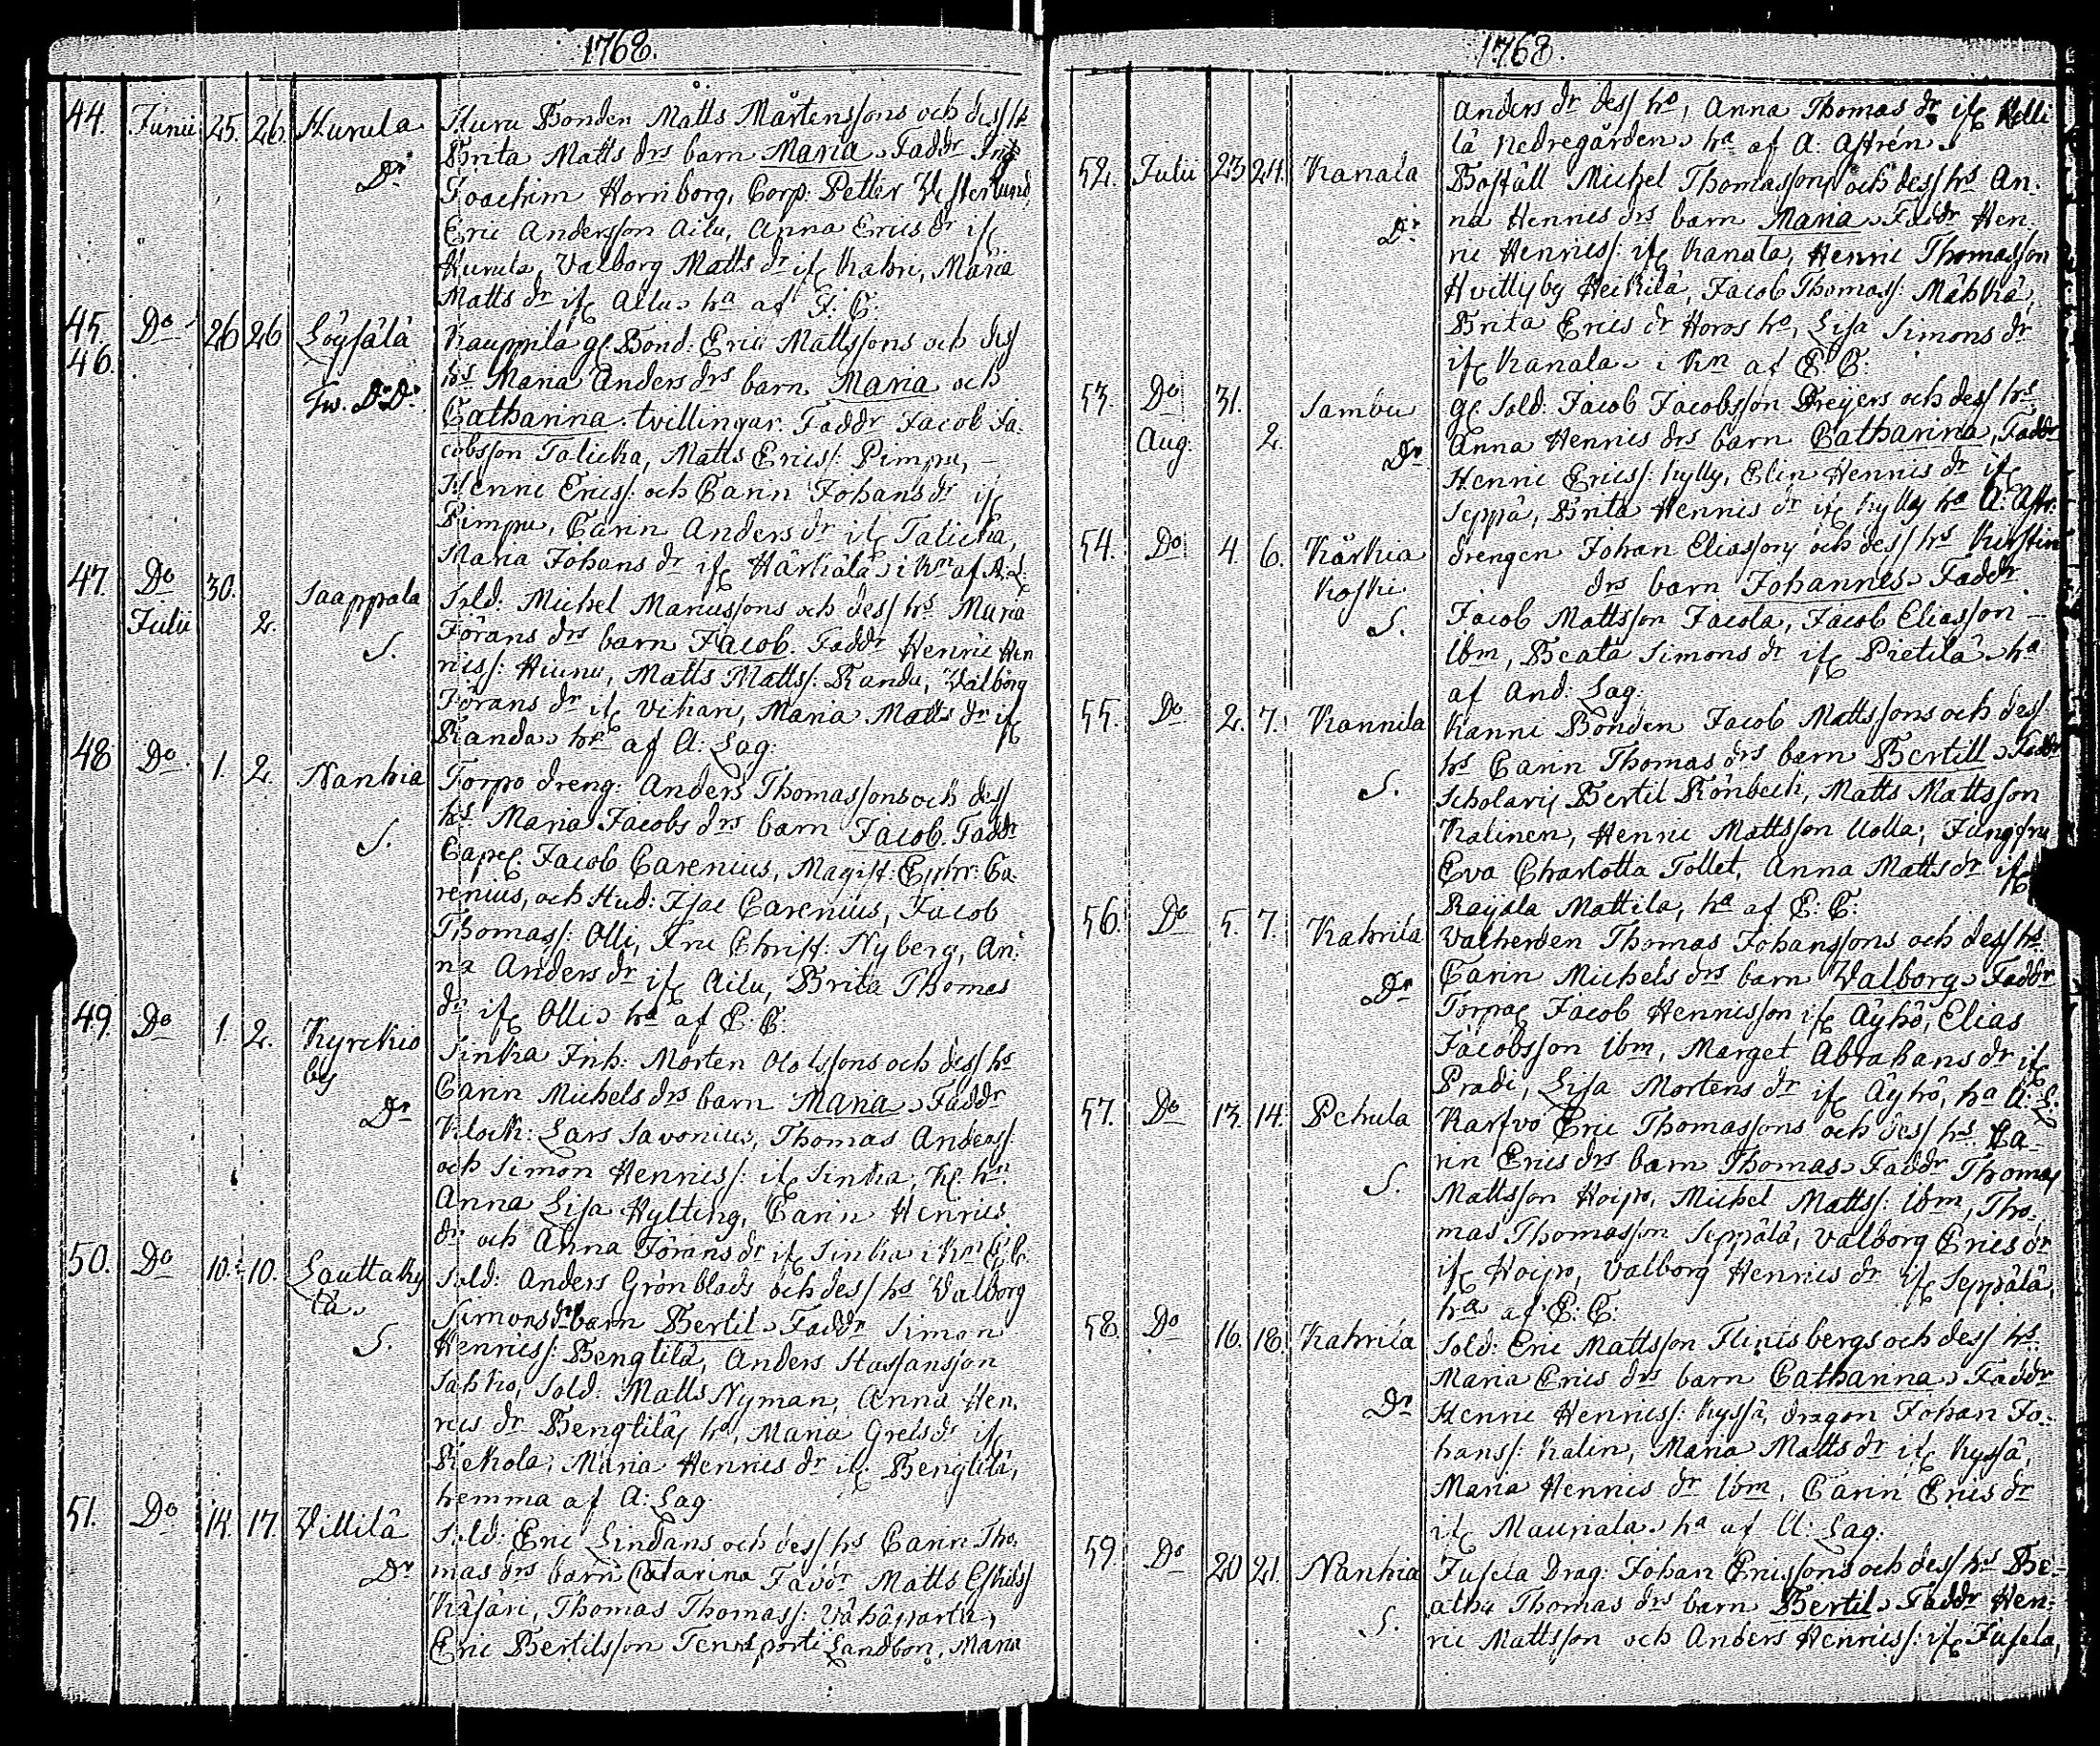 1768.
44. Junii 25. 26. Hurula
Dr
Huru Bonden Matts Mårtenssons och dess h
Brita Matts drs barn Maria. Faddr
Joachim Hornborg, Corp: Petter Westerlund,
Eric Andersson Ailu, Anna Erics dr if
Hurula, Valborg Matts dr if Kahri, Maria
Matts dr if Ailu. ha af E: C:
45. Do 26 26 Löysälä
46.
Tw. Dr Dr
Kauppila gl Bond: Eric Mattssons och dess
hs Maria Anders drs barn Maria och
Catharina tvillingar. Faddr Jacob Ja-
cobsson Talicka, Matts Ericss: Pimpu,
Henric Ericss: och Carin Johans dr if
Pimpu, Carin Anders dr if Talicka,
Maria Johans dr if Härkälä i Kn af A: L:
47. Do 30. Saappala
Julii 2.
S.
Sold: Michel Mariussons och dess hs Maria
Jörans drs barn Jacob. Faddr Henric Hen
ricss: Hiunu, Matts Mattss: Randa, Valborg
Jörans dr if Vihari, Maria Matts dr if
Randa. ha af A: Lag:
48 Do. 1. 2. Nanhia
S.
Torpo dreng: Anders Thomassons och dess
hs Maria Jacobs drs barn Jacob. Faddr
Capel. Jacob Carenius, Magist: Ephr: Ca
renius, och Stud: Isac Carenius, Jacob
Thomass: Olli, Fru Christ: Nyberg, An:
na Anders dr if Ailu, Brita Thomas
dr if Olli. ha af E: C:
49. Do 1. 2. Kyrckio
by
Dr
Sinka Inh: Morten Olofssons och dess hs
Carin Michels drs barn Maria. Faddr
Klock: Lars Savonius, Thomas Anderss:
och Simon Henricss: if Sinka, Kl: hn
Anna Lisa Hylting, Carin Henrics
dr och Anna Jörans dr if Sinka i Kn E: C:
50. Do 10. 10. Lauttaky
lä.
S.
Sold: Anders Grönblads och dess hs Valborg
Simons drs barn Bertil. Faddr Simon
Henricss: Bengtilä, Anders Staffansson
Sahko, Sold: Matts Nyman, Anna Hen:
rics dr Bengtilä, ha, Maria Grels dr if
Rekola, Maria Henrics dr if Bengtilä,
hemma af A: Lag.
51. Do 14. 17. Villilä
Dr
Sold: Eric Lindans och dess hs Carin Tho
mas drs barn Catarina Faddr Matts Eskils
Käsäri, Thomas Thomass: Vähäparta,
Eric Bertilsson Tenksporti Landbon, Maria
1768.
Anders dr dess ha, Anna Thomas dr if Kelli
lä Nedregården. ha af A: Affrén.
52. Julii 23 24. Kanala
Dr
Bosfält Michel Thomassons och dess hs An:
na Henrics drs barn Maria. Faddr Hen-
ric Henricss: if Kanala, Henric Thomasson
Hvittisby Heikilä, Jacob Thomass: Mähkä,
Brita Erics dr Horos ha, Lisa Simons dr
if Kanala. i Kn af E: C:
53. Do 31. Sambu
Aug. 2.
Dr
gl. Sold: Jacob Jacobsson Dreijers och dess hs
Anna Henrics drs barn Catharina, Faddr
Henric Ericss: Kylly, Elin Henrics dr if
Seppä, Brita Henrics dr if Kylly ha A: Affr:
54. Do 4. 6. Kärkia
koski.
S.
drengen Johan Eliassons och dess hs Kirstin
drs barn Johannes. Faddr
Jacob Mattsson Jacola, Jacob Eliasson
ibm, Beata Simons dr if Pietilä. ha
af And: Lag:
55. Do 2. 7. Kannila
S.
Kanni Bonden Jacob Mattssons och dess
hs Carin Thomas drs barn Bertill. Faddr
Scholaris Bertil Rönbeck, Matts Mattsson
Kalinen, Henric Mattsson Uolla, Jungfru
Eva Charlotta Tollet, Anna Matts dr if
Rayala Mattila, ha af E: C:
56. Do 5. 7. Kahrila
Dr
Valherden Thomas Johanssons och dess hs
Carin Michels drs barn Walborg. Faddr
Torpae Jacob Henricsson if Äyhö, Elias
Jacobsson ibm, Marget Abrahams dr if
Pradi, Lisa Mortens dr if Äyhö, ha A: L:
57. Do 13. 14. Pehula
S.
Karfvo Eric Thomassons och dess hs Ca-
rin Erics drs barn Thomas. Faddr Thomas
Mattsson Hoipo, Michel Mattss: ibm, Tho:
mas Thomasson Seppälä, Valborg Erics dr
if Hoipo, Valborg Henrics dr if Seppälä,
ha af E: C:
58. Do 16. 18. Kahrila
Dr
Sold: Eric Mattsson Flinksbergs och dess hs
Maria Erics drs barn Catharina. Faddr
Henric Henricss: Kyssä, dragon Johan Jo-
hanss: Kalin, Maria Matts dr if Kyssä,
Maria Henrics dr ibm, Carin Erics dr
if Mauriala. ha af A: Lag.
59 Do 20 21. Nanhia
S.
Jusela Drag: Johan Ericssons och dess hs Be-
atha Thomas drs barn Bertil. Faddr Hen-
ric Mattsson och Anders Henricss: if Jusela,